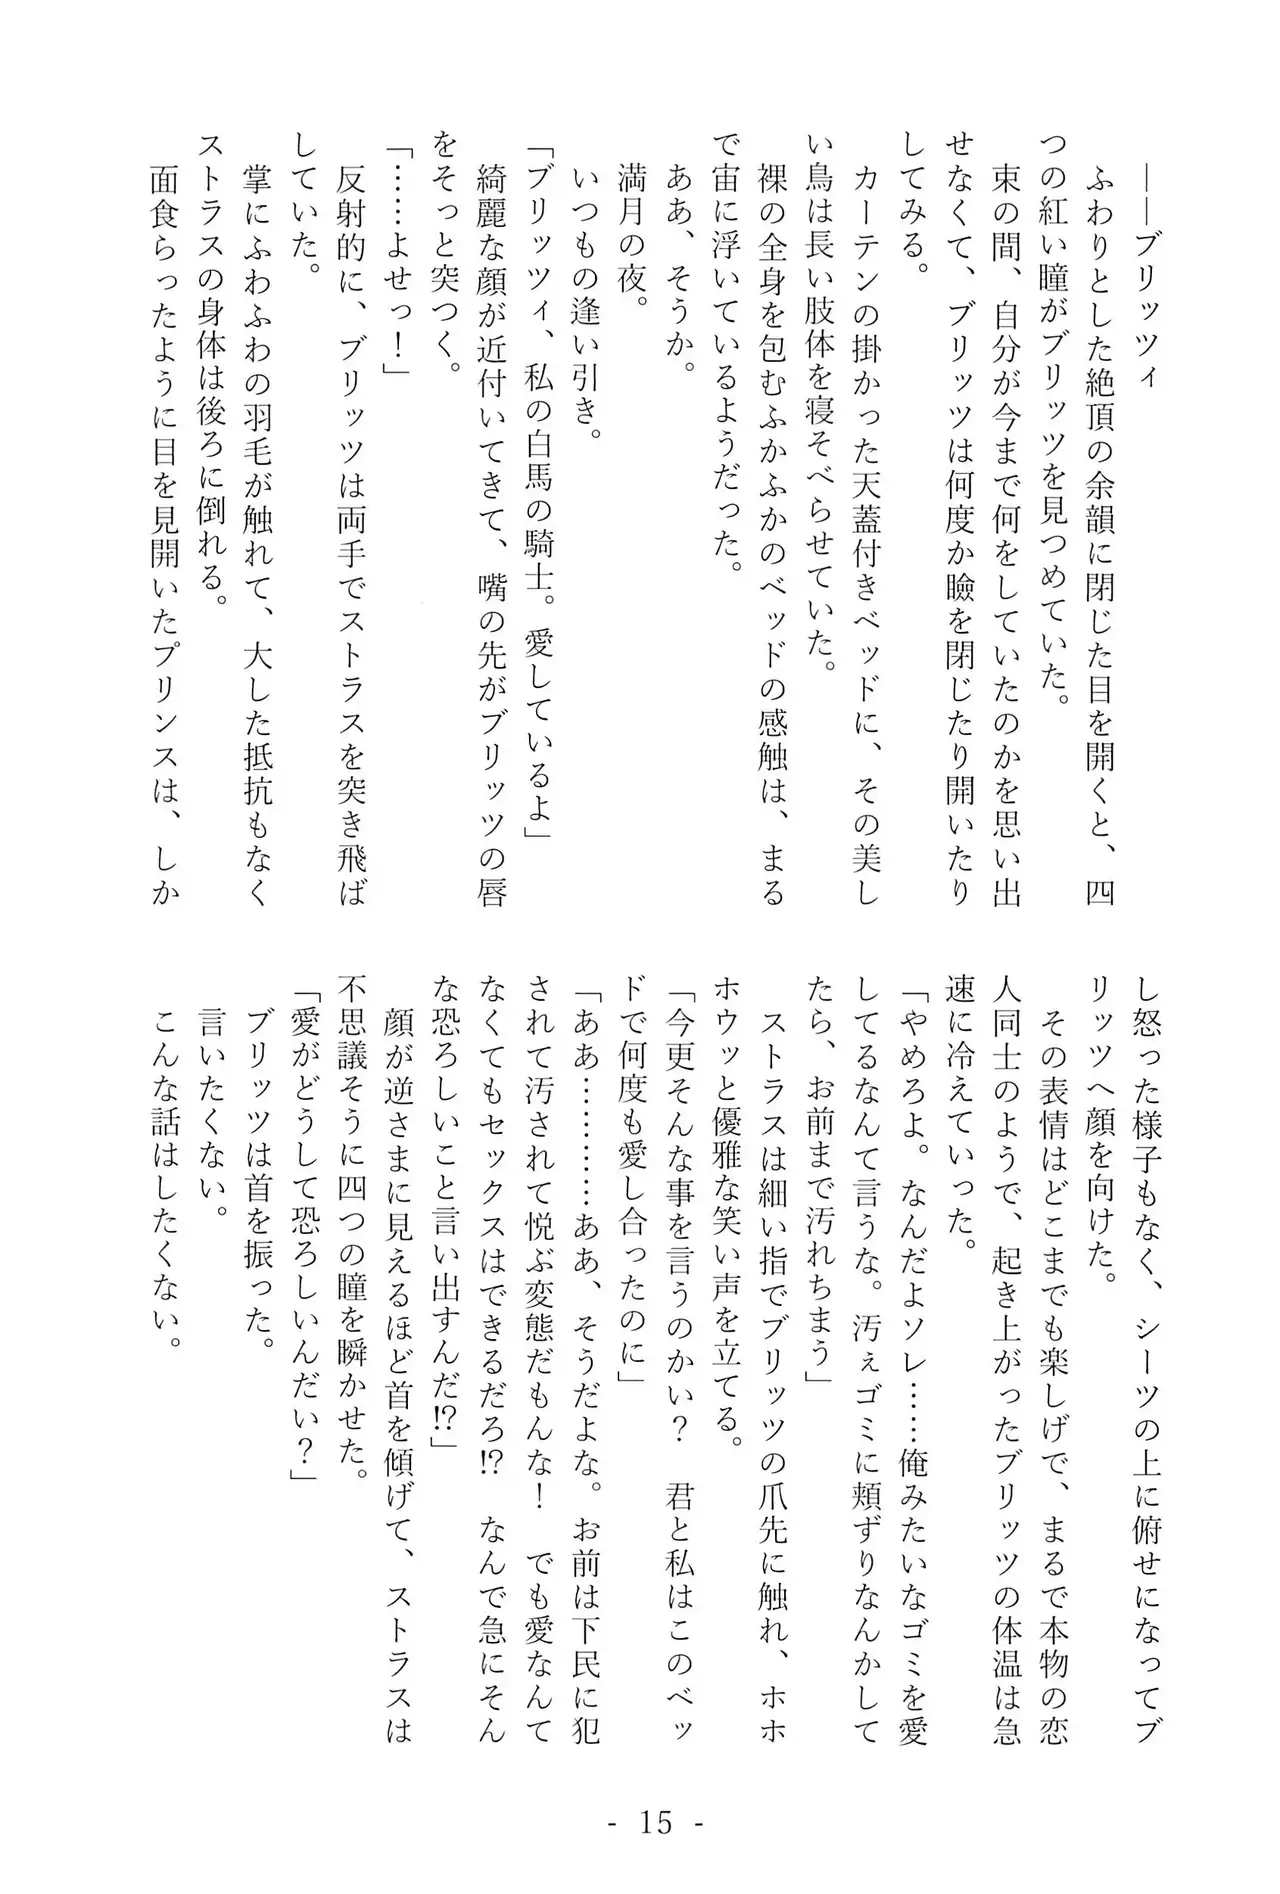 ――ブリッツィ
　ふわりとした絶頂の余韻に閉じた目を開くと、四
つの紅い瞳がブリッツを見つめていた。
　束の間、自分が今まで何をしていたのかを思い出
せなくて、ブリッツは何度か瞼を閉じたり開いたり
してみる。
　カーテンの掛かった天蓋付きベッドに、その美し
い鳥は長い肢体を寝そべらせていた。
　裸の全身を包むふかふかのベッドの感触は、まる
で宙に浮いているようだった。
　ああ、そうか。
　満月の夜。
　いつもの逢い引き。
「ブリッツィ、私の白馬の騎士。愛しているよ」
　綺麗な顔が近付いてきて、嘴の先がブリッツの唇
をそっと突つく。
「……よせっ！」
　反射的に、ブリッツは両手でストラスを突き飛ば
していた。
　掌にふわふわの羽毛が触れて、大した抵抗もなく
ストラスの身体は後ろに倒れる。
　面食らったように目を見開いたプリンスは、しか
し怒った様子もなく、シーツの上に俯せになってブ
リッツへ顔を向けた。
　その表情はどこまでも楽しげで、まるで本物の恋
人同士のようで、起き上がったブリッツの体温は急
速に冷えていった。
「やめろよ。なんだよソレ……俺みたいなゴミを愛
してるなんて言うな。汚ぇゴミに頬ずりなんかして
たら、お前まで汚れちまう」
　ストラスは細い指でブリッツの爪先に触れ、ホホ
ホウッと優雅な笑い声を立てる。
「今更そんな事を言うのかい？　君と私はこのベッ
ドで何度も愛し合ったのに」
「ああ…………ああ、そうだよな。お前は下民に犯
されて汚されて悦ぶ変態だもんな！　でも愛なんて
なくてもセックスはできるだろ!?　なんで急にそん
な恐ろしいこと言い出すんだ!?」
　顔が逆さまに見えるほど首を傾げて、ストラスは
不思議そうに四つの瞳を瞬かせた。
「愛がどうして恐ろしいんだい？」
　ブリッツは首を振った。
　言いたくない。
　こんな話はしたくない。
- 15 -